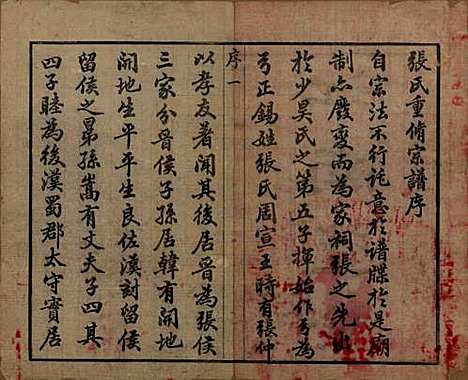 張氏重脩宗譜序
自宗法不行託意於譜牒於是廟
制亦廢變而為家祠張之先出
於少昊氏之第五子揮始作弓為
弓正錫姓張氏周宣王時有張仲
序一
以孝友著聞其後居晉為張侯
三家分晉侯子孫居韓有開地
開地生平平生良佐漢封留侯
留侯之昴孫嵩有丈夫子四其
四子睦為後漢蜀郡太守實居